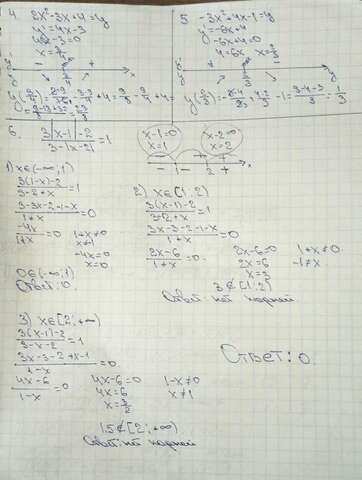 4. 2x²-3x+4=y
y'=4x-3
4x-3=0
x=3/4
5 -3x²+4x-1=y
y'=-6x+4
-6x+4=0
4=6x x=2/3
6. (3|x-1|-2)/(3-|x-2|)=1
x-1=0
x=1
x-2=0
x=2
1) x∈(-∞;1)
(3(1-x)-2)/(3-2+x)=1
(3-3x-2-1-x)/(1+x)=0
(-4x)/(1+x)=0 1+x≠0
x≠-1
-4x=0
x=0
0∈(-∞;1)
Ответ: 0.
2) x∈[1;2)
(3(x-1)-2)/(3-2+x)=1
(3x-3-2-1-x)/(1+x)=0
(2x-6)/(1+x)=0
2x-6=0 1+x≠0
2x=6 -1≠x
x=3
3∉[1;2)
Ответ: нет корней
3) x∈[2;+∞)
(3(x-1)-2)/(3-x-2)=1
(3x-3-2+x-1)/(1-x)=0
(4x-6)/(1-x)=0 4x-6=0 1-x≠0
4x=6 x≠1
x=3/2
1.5∉[2;+∞)
Ответ: нет корней
Ответ: 0